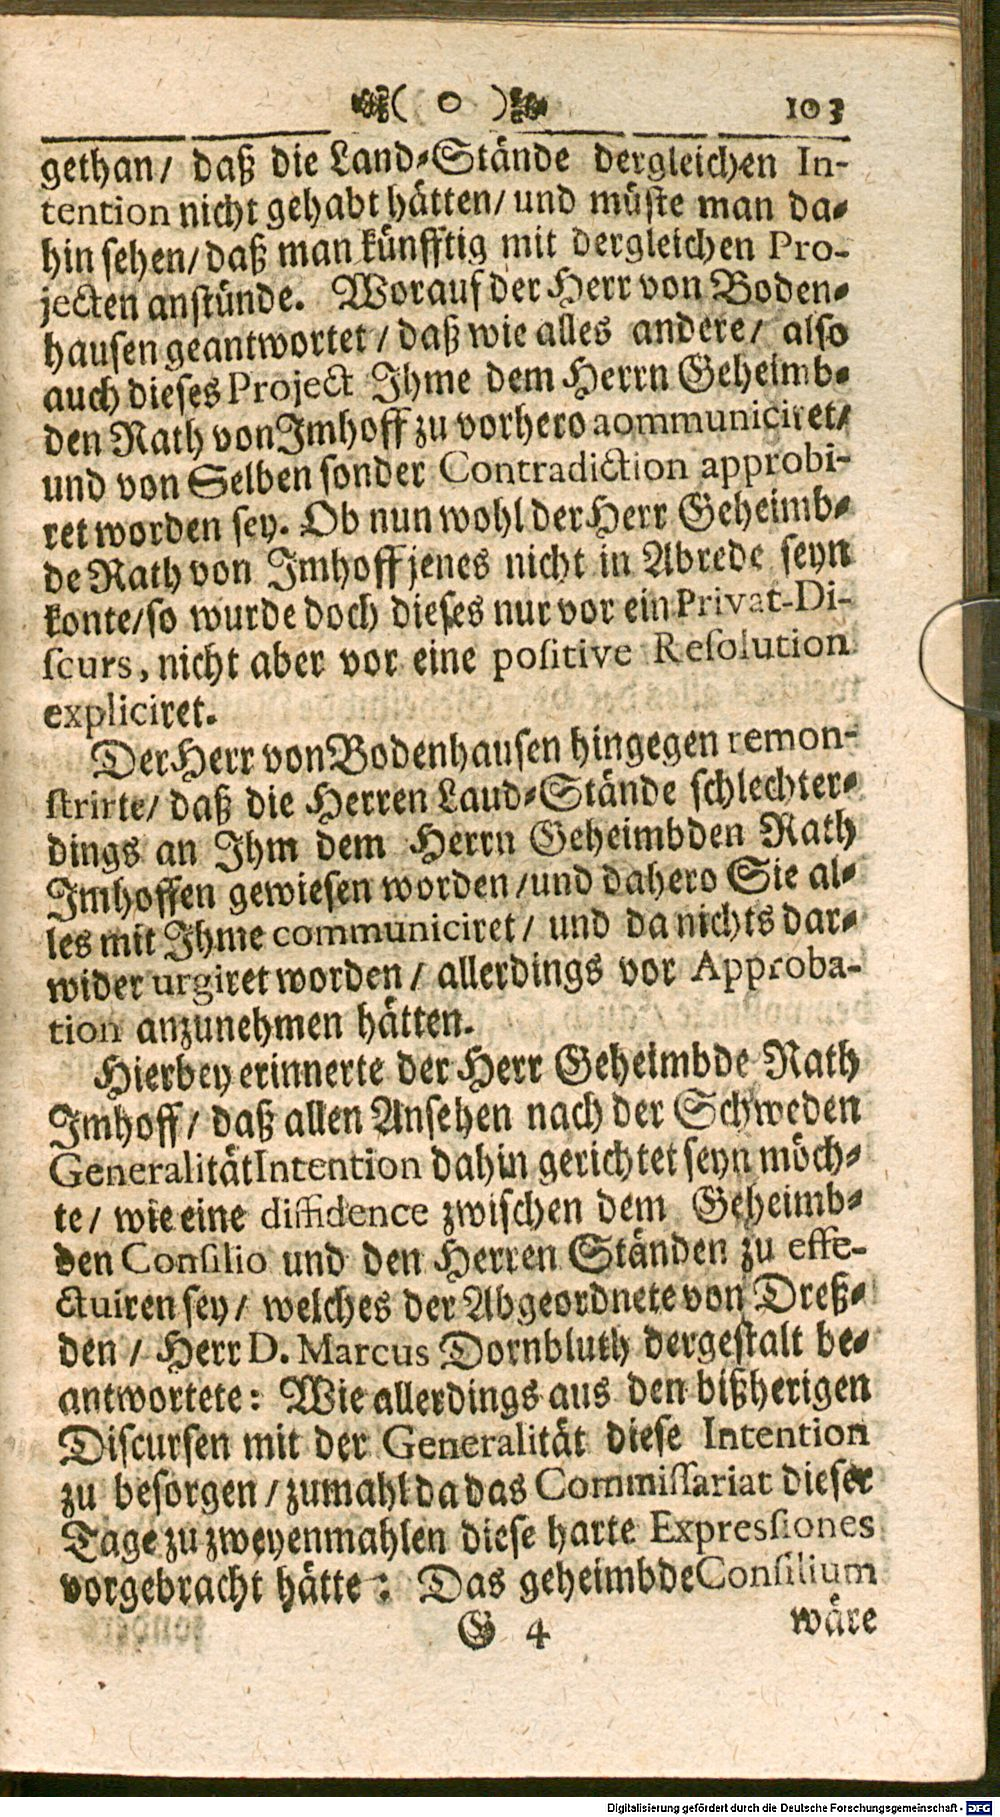 ( o ) 103
gethan/ daß die Land-Stände dergleichen In-
tention nicht gehabt hätten/ und müste man da-
hin sehen/ daß man künfftig mit dergleichen Pro-
jecten anstünde. Worauf der Herr von Boden-
hausen geantwortet/ daß wie alles andere/ also
auch dieses Project Ihme dem Herrn Geheimb-
den Rath von Imhoff zu vorhero aommuniciret/
und von Selben sonder Contradiction approbi-
ret worden sey. Ob nun wohl der Herr Geheimb-
de Rath von Imhoff jenes nicht in Abrede seyn
konte/ so wurde doch dieses nur vor ein Privat-Di-
scurs, nicht aber vor eine positive Resolution
expliciret.
Der Herr von Bodenhausen hingegen remon-
strirte/ daß die Herren Laud-Stände schlechter-
dings an Ihm dem Herrn Geheimbden Rath
Imhoffen gewiesen worden/ und dahero Sie al-
les mit Ihme communiciret/ und da nichts dar-
wider urgiret worden/ allerdings vor Approba-
tion anzunehmen hätten.
Hierbey erinnerte der Herr Geheimbde Rath
Imhoff/ daß allen Ansehen nach der Schweden
Generalität Intention dahin gerichtet seyn möch-
te/ wie eine diffidence zwischen dem Geheimb-
den Consilio und den Herren Ständen zu effe-
ctuiren sey/ welches der Abgeordnete von Dreß-
den/ Herr D. Marcus Dornbluth dergestalt be-
antwortete: Wie allerdings aus den bißherigen
Discursen mit der Generalität diese Intention
zu besorgen/ zumahl da das Commissariat dieser
Tage zu zweyenmahlen diese harte Expressiones
vorgebracht hätte: Das geheimbde Consilium
G 4 wäre
Digitalisierung gefördert durch die Deutsche Forschungsgemeinschaft - DFG